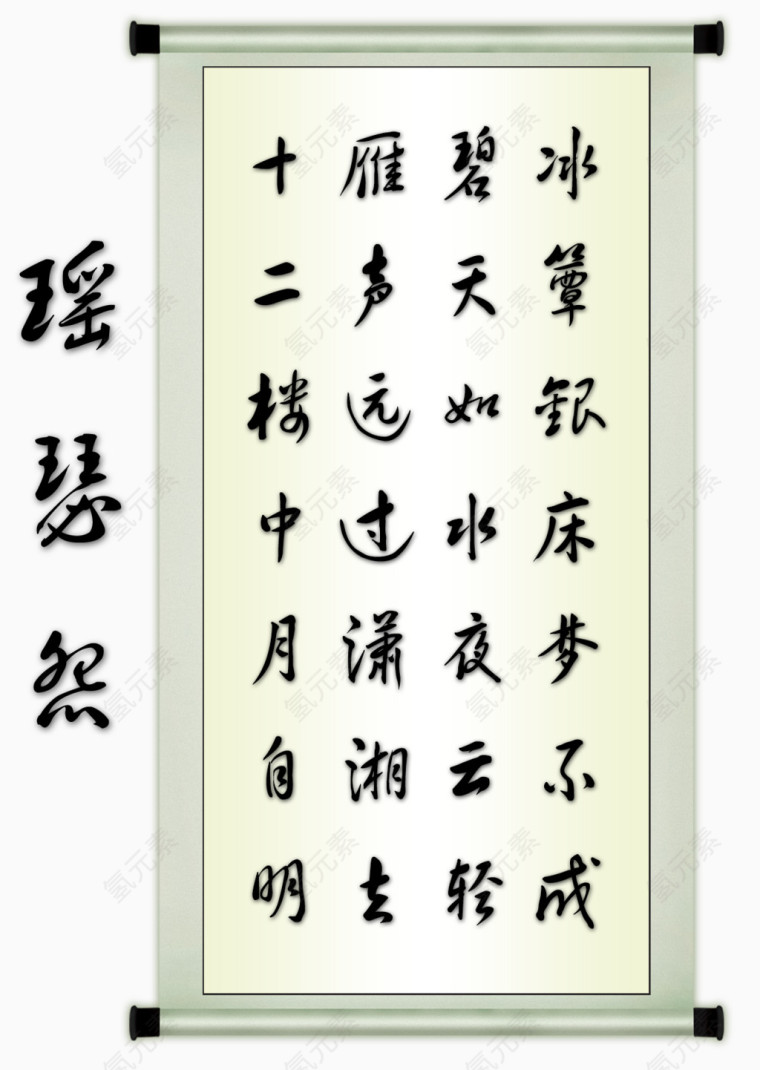 冰簟銀床梦不成
碧天如水夜云轻
雁声远过潇湘去
十二楼中月自明
瑶瑟怨
氢元素